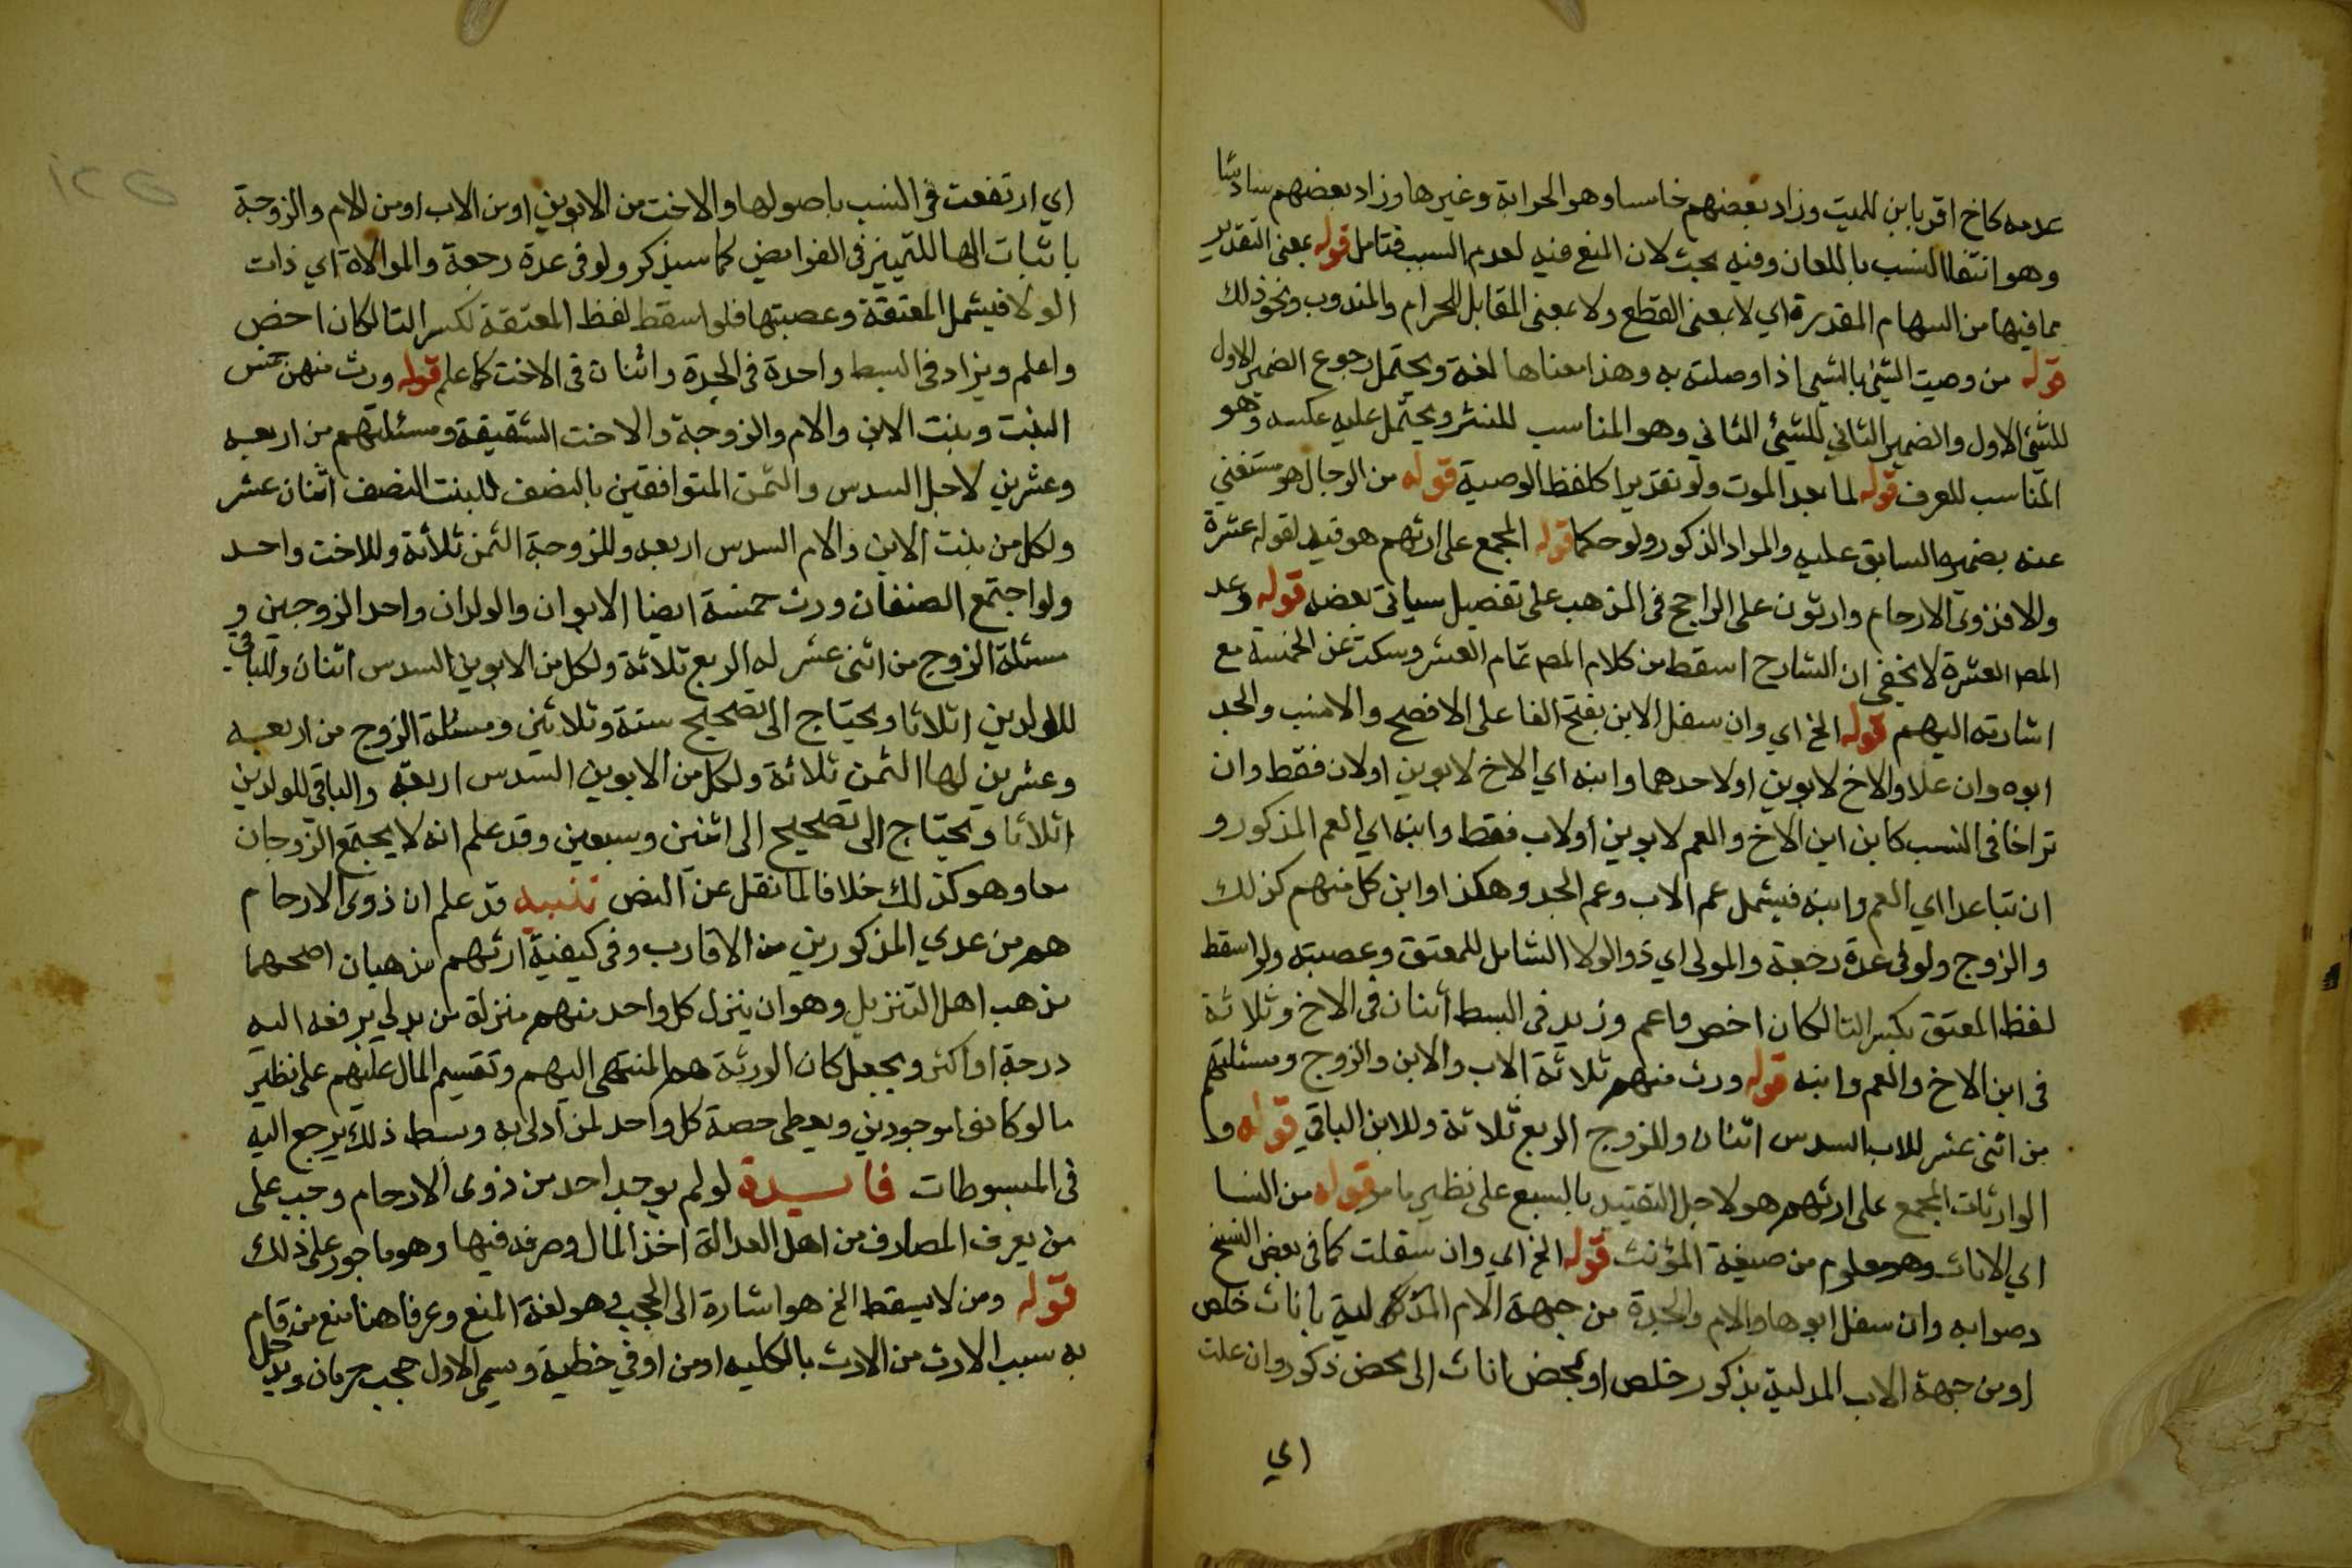 عدمه كاخ اقر بابن للميت وزاد بعضهم خامسا وهو الحرابة وغيرها وزاد بعضهم سادسا
وهو انتفا النسب باللعان وفيه بحث لان المنع فيه لعدم السبب فتامل قوله بمعنى التقدير
مما فيها من السهام المقدرة اي لا بمعنى القطع ولا بمعنى المقابل للحرام والمندوب ونحو ذلك
قوله من وصيت الشئ بالشئ اذا وصلته به وهذا معناها لغة ويحتمل رجوع الضمير الاول
للشئ الاول والضمير الثاني للشئ الثاني وهو المناسب للنشر ويحتمل عليه عكسه وهو
المناسب للعرف قوله لما بعد الموت ولو تقديرا كلفظ الوصية قوله من الرجال هو مستغني
عنه بضميره السابق عليه والمراد الذكور ولو حكما قوله المجمع على ارثهم هو قيد لقوله عشرة
والا فذوي الارحام وارثون على الراجح في المذهب على تفصيل سياتي بعضه قوله وعد
المص العشرة لا يخفى ان الشارح اسقط من كلام المص تمام العشر وسكت عن الخمسة مع
اشارته اليهم قوله الخ اي وان سفل الابن بفتح الفا على الافصح والانسب والجد
ابوه وان علا والاخ لابوين او لاحدهما وابنه اي الاخ لابوين او لاب فقط وان
تراخا في النسب كابن ابن الاخ والعم لابوين او لاب فقط وابنه اي العم المذكور و
ان تباعدا اي العم وابنه فيشمل عم الاب وعم الجد وهكذا وابن كل منهم كذلك
والزوج ولو في عدة رجعة والمولى اي ذو الولا الشامل للمعتق وعصبته ولو اسقط
لفظ المعتق بكسر التا لكان اخص واعم وزيد في البسط اثنان في الاخ وثلاثة
في ابن الاخ والعم وابنه قوله ورث منهم ثلاثة الاب والابن والزوج ومسئلتهم
من اثنى عشر للاب السدس اثنان وللزوج الربع ثلاثة وللابن الباقي قوله وا
الوارثات المجمع على ارثهم هو لاجل التقييد بالسبع على نظير ما مر قوله من النسا
اي الاناث وهو معلوم من صيغة المؤنث قوله الخ اي وان سفلت كما في بعض النسخ
وصوابه وان سفل ابوها والام والجدة من جهة الام المدلية باناث خلص
او من جهة الاب المدلية بذكور خلص او بمحض اناث الى محض ذكور وان علت
اي
اي ارتفعت في النسب باصولها والاخت من الابوين او من الاب او من الام والزوجة
باثبات الها للتمييز في الفرايض كما سيذكر ولو في عدة رجعة والموالاة اي ذات
الولا فيشمل المعتقة وعصبتها فلو اسقط لفظ المعتقة بكسر التا لكان اخص
واعلم ويزاد في البسط واحدة في الجدة واثنان في الاخت كما علم قوله ورث منهن خمس
البنت وبنت الابن والام والزوجة والاخت الشقيقة ومسئلتهم من اربعه
وعشرين لاجل السدس والثمن المتوافقين بالنصف للبنت النصف اثنان عشر
ولكل من بنت الابن والام السدس اربعه وللزوجة الثمن ثلاثة وللاخت واحد
ولو اجتمع الصنفان ورث خمسة ايضا الابوان والولدان واحد الزوجين و
مسئلة الزوج من اثنى عشر له الربع ثلاثة ولكل من الابوين السدس اثنان والباقي
للولدين اثلاثا ويحتاج الى تصحيح ستة وثلاثين ومسئلة الزوج من اربعه
وعشرين لها الثمن ثلاثة ولكل من الابوين السدس اربعة والباقي للولدين
اثلاثا ويحتاج الى تصحيح الى اثنين وسبعين وقد علم انه لا يجتمع الزوجان
معا وهو كذلك خلافا لما نقل عن النص تنبيه قد علم ان ذوي الارحام
هم من عدي المذكورين من الاقارب وفي كيفية ارثهم مذهبان اصحهما
مذهب اهل التنزيل وهو ان ينزل كل واحد منهم منزلة من يدلي برفعه اليه
درجة او اكثر ويجعل كان الورثة هم المنتهى اليهم وتقسيم المال عليهم على نظير
ما لو كانوا موجودين ويعطى حصة كل واحد لمن ادلى به وبسط ذلك يرجع اليه
في المبسوطات فايدة لو لم يوجد احد من ذوي الارحام وجب على
من يعرف المصارف من اهل العدالة اخذ المال وصرفه فيها وهو ماجور على ذلك
قوله ومن لا يسقط الخ هو اشارة الى الحجب وهو لغة المنع وعرفا هنا منع من قام
به سبب الارث من الارث بالكليه او من اوفي حظيه وسمي الاول حجب حرمان ويدخل